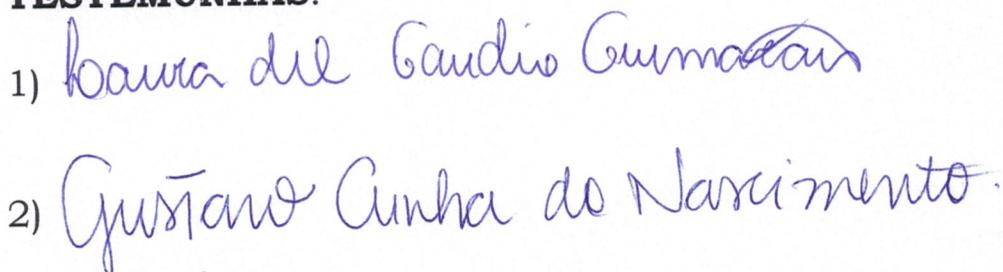 TESTEMUNHAS:
1) Laura del Gaudio Guimarães
2) Gustavo Cunha do Nascimento.